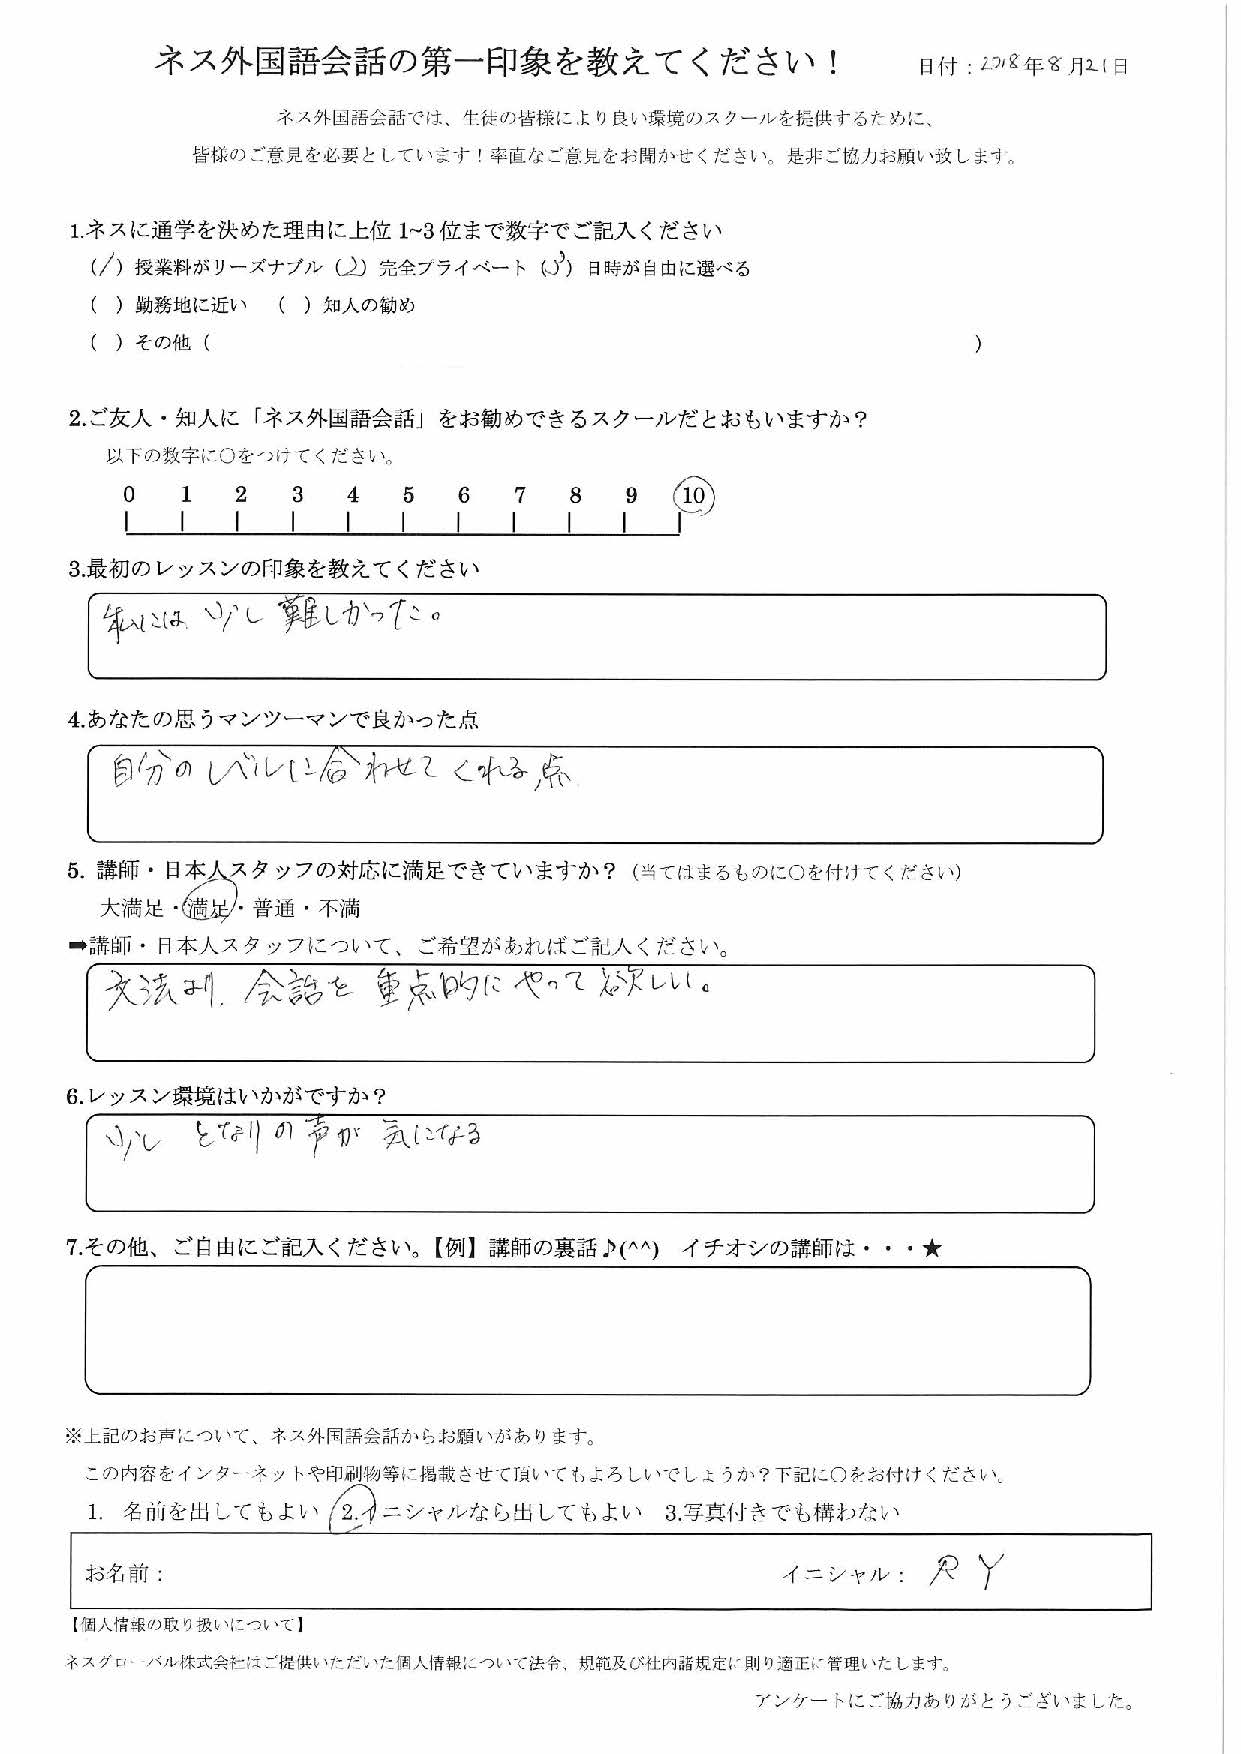 ネス外国語会話の第一印象を教えてください！ 日付：2018年8月21日
ネス外国語会話では、生徒の皆様により良い環境のスクールを提供するために、
皆様のご意見を必要としています！率直なご意見をお聞かせください。是非ご協力お願い致します。
1.ネスに通学を決めた理由に上位 1~3 位まで数字でご記入ください
（1）授業料がリーズナブル（2）完全プライベート（3）日時が自由に選べる
（ ）勤務地に近い （ ）知人の勧め
（ ）その他（ ）
2.ご友人・知人に「ネス外国語会話」をお勧めできるスクールだとおもいますか？
以下の数字に〇をつけてください。
0 1 2 3 4 5 6 7 8 9 10
3.最初のレッスンの印象を教えてください
私には 少し 難しかった。
4.あなたの思うマンツーマンで良かった点
自分のレベルに合わせてくれる点
5. 講師・日本人スタッフの対応に満足できていますか？（当てはまるものに〇を付けてください）
大満足・満足・普通・不満
➡講師・日本人スタッフについて、ご希望があればご記入ください。
文法より、会話を 重点的に やって 欲しい。
6.レッスン環境はいかがですか？
少し となりの声が 気になる
7.その他、ご自由にご記入ください。【例】講師の裏話♪(^^) イチオシの講師は・・・★
※上記のお声について、ネス外国語会話からお願いがあります。
この内容をインターネットや印刷物等に掲載させて頂いてもよろしいでしょうか？下記に〇をお付けください。
1. 名前を出してもよい 2.イニシャルなら出してもよい 3.写真付きでも構わない
お名前： イニシャル： R Y
【個人情報の取り扱いについて】
ネスグローバル株式会社はご提供いただいた個人情報について法令、規範及び社内諸規定に則り適正に管理いたします。
アンケートにご協力ありがとうございました。